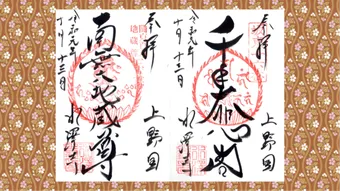 奉拝
上野国
千手大悲閣
令和元年
十月十三日
水澤寺
奉拝
上野国
南無六地蔵尊
令和元年
十月十三日
水澤寺